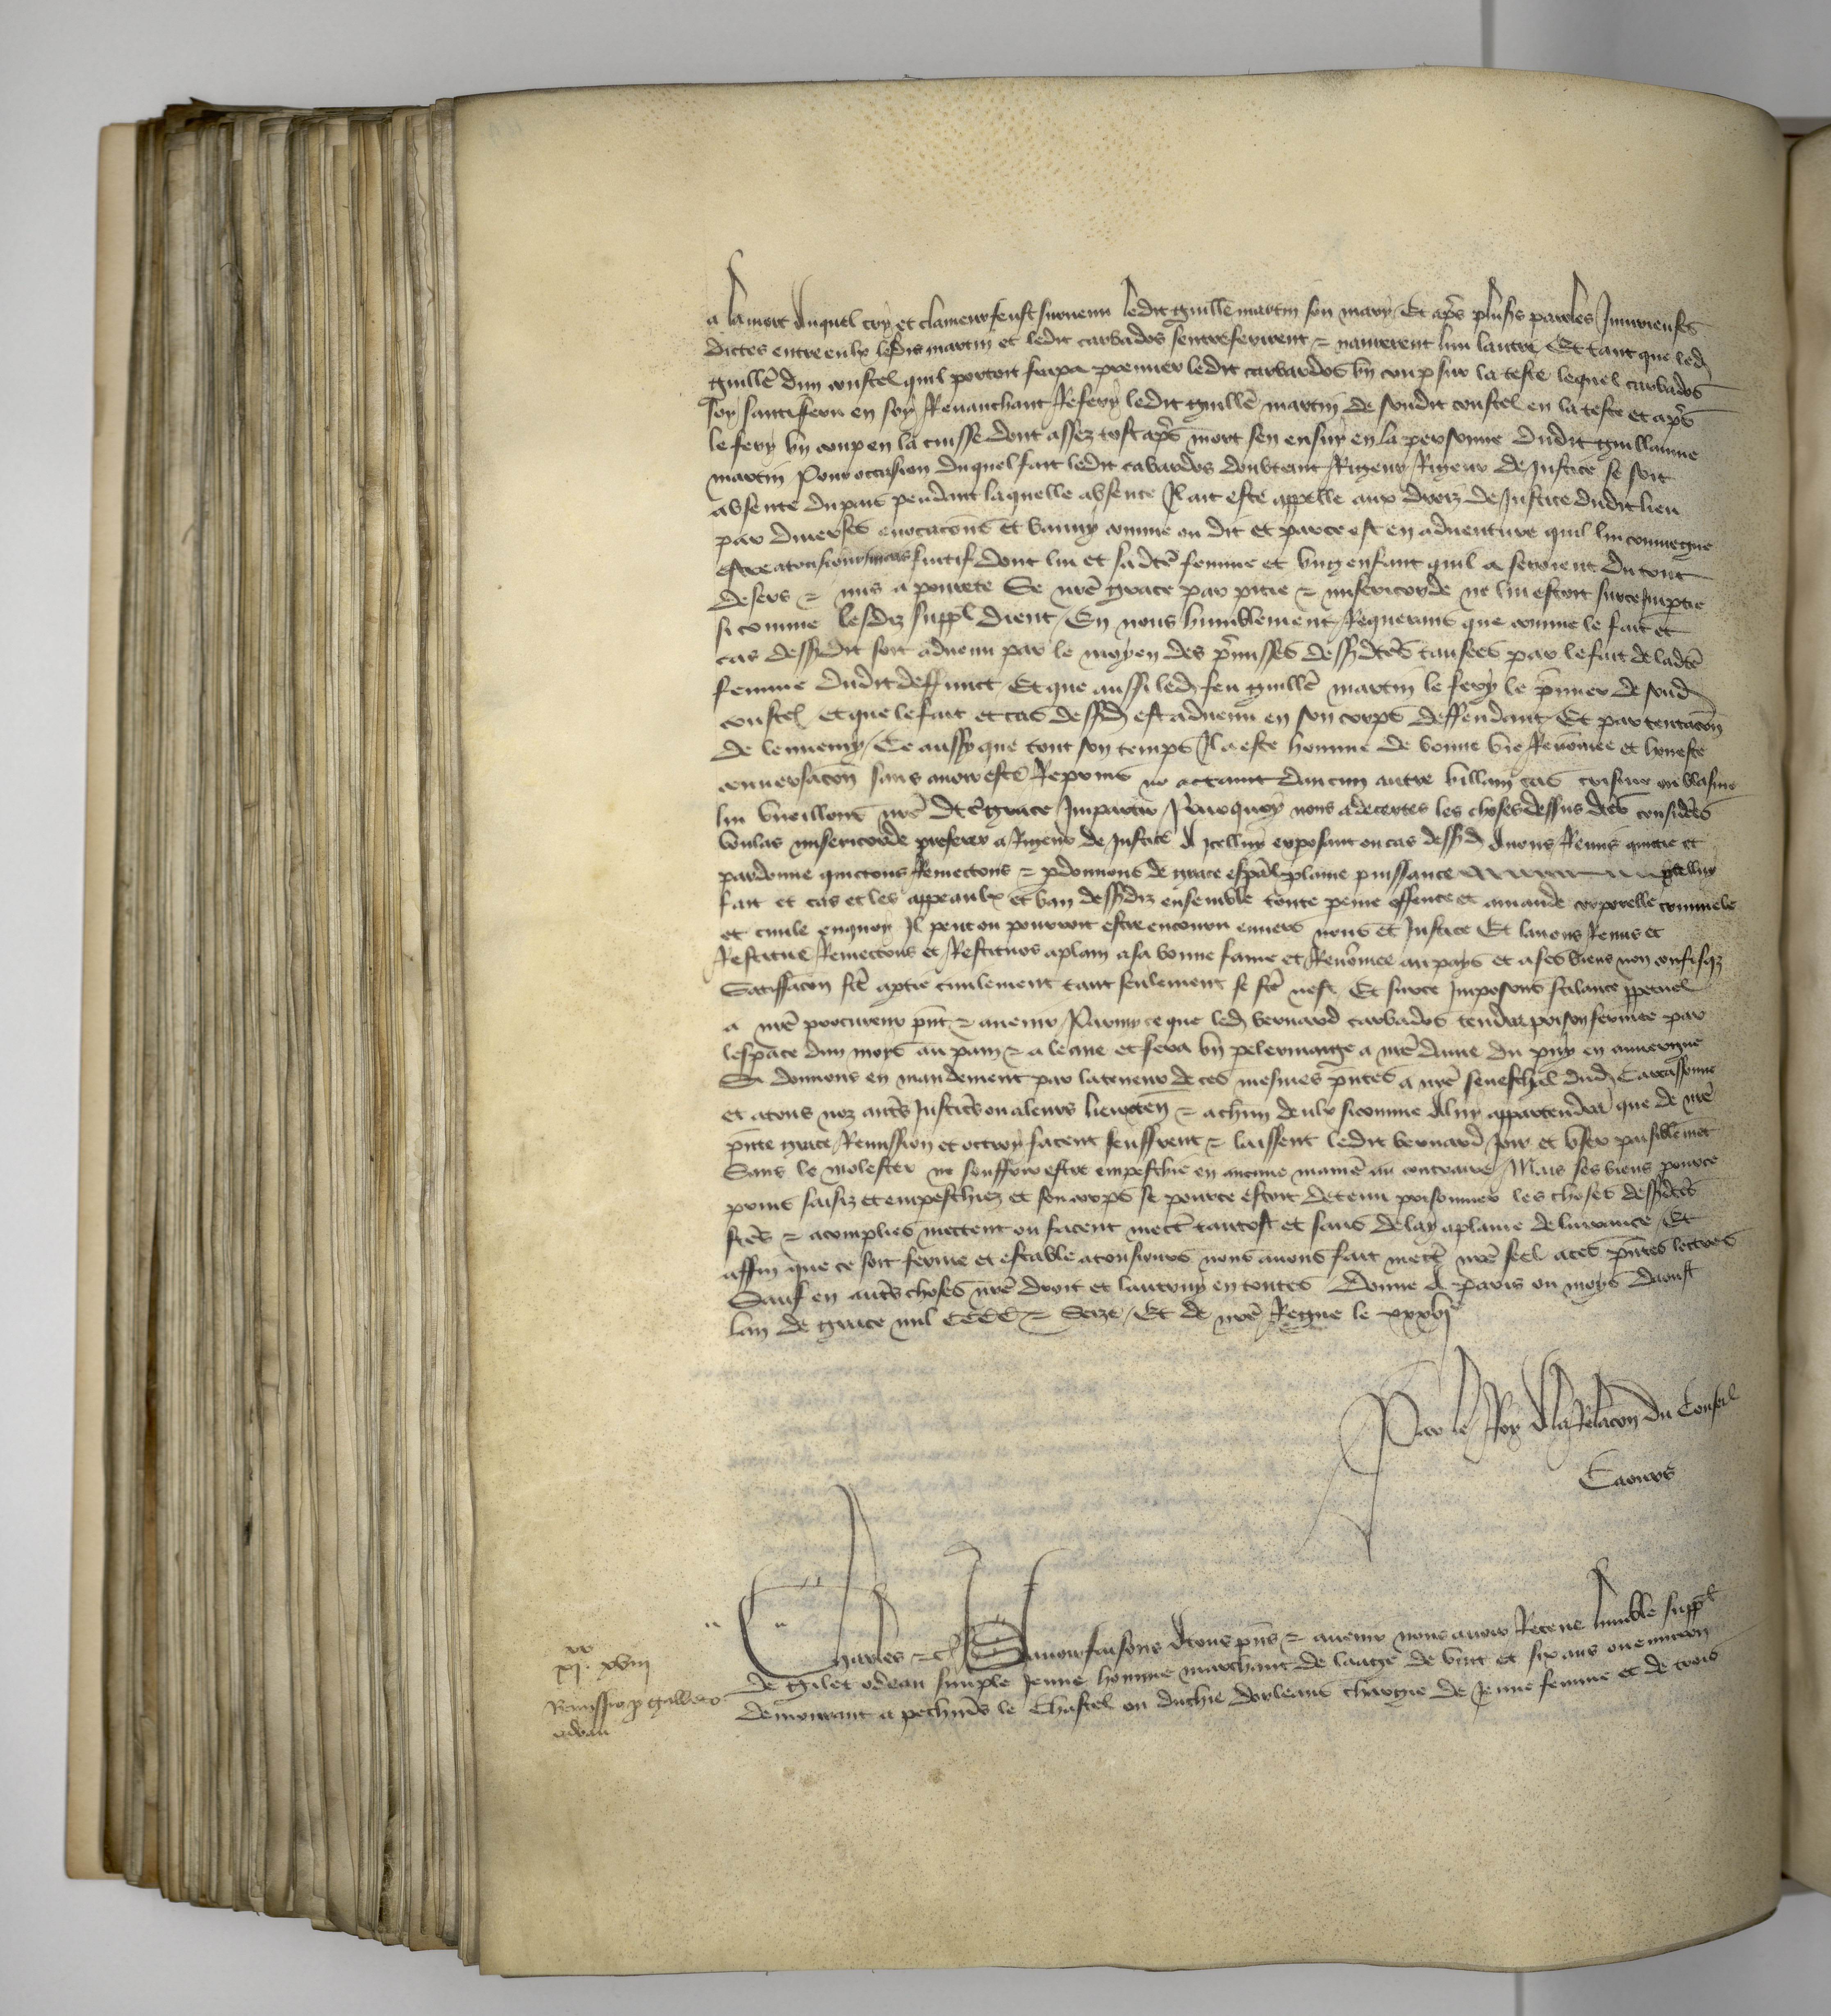 a la mort duquel cry et clameur feust survenu ledit guillē martin son mary Et aps̄ plus̄rs paroles Iniurieuses
dictes entre eulx lesdis martin et ledit carbados sentreferirent ⁊ navrerent lun lautre Et tant que led
guillē dun coustel quil portoit frapa premier ledit carbardos un coup sur la teste lequel carbados
soy santissieu en soy Revanchant Refery ledit guillē martin de sondit coustel en la teste et aps̄
le fery un coup en la cuisse dont assez tost aps̄ mort sen ensuy en la personne dudit guillaume
martin Pour occasion duquel fait ledit cabardos doubtant Rigeur Rigeur de Justice se soit
absente du pais pendant laquelle absente Il ait este appelle aux droiz de Justice dudit lieu
par diverses evocacōns et banny comme on dit et par ce est en adventure quil lui conviegne
estre atousiourmais fuitif dont lui et sadcē femme et ung enfant quil a seroient du tout
desers ⁊ mis a pourete Se nrē grace par pitie ⁊ misericorde ne lui estoit surce Impartie
si comme lesdiz suppl dient En nous humblement Requerans que comme le fait et
cas dessusdit soit advenu par le moyen des p̄misses dessusdcēs causees par le fait de ladcē
femme dudit deffunct Et que aussi led feu guillē martin le fery le p̄mier de sond
coustel et que le fait et cas dessusd est advenu en son corps deffendant Et par temtacōn
de lennemy Et aussy que tout son temps Il a este homme de bonne vie Renōmee et honeste
conversacōn sans avoir este Reprins ne actaint daucun autre villain cas crisme ou blasme
lui vueillons nrē dcē grace Impartir Pourquoy nous adecertes les choses dessus dcēs considerēs
voulās misericorde preferer a Rigeur de Justice A Icellui exposant ou cas dessusd Avons Remis quicte et
pardonne quictons Remectons ⁊ pdonnons de grace espāl plaine puissance Icellui
fait et cas et les appeaulx et ban dessusdiz ensemble toute peine offence et amande corporelle criminele
et civile enquoy Il peut ou pourroit estre encouru envers nous et Justice Et lavons Remis et
Restitue Remectons et Restituons aplain a sa bonne fame et Renōmee au pays et a ses biens non confisqz
Satiffacōn fcē aptie civilement tant seulement se fcē nest Et surce Imposons scilance ppetuel
a nrē procureur pn̄t ⁊ avenir Parmy ce que led bernard carbados tendra prison fermee par
lespace dun mois au pain ⁊ a leaue et fera un pelerinaige a nrē dame du puy en auvergne
Si donnons en mandement par la teneur de ces mesmes pn̄tes a nrē seneschal dud Carcassonne
et atous noz autrs̄ Justicrs̄ ou aleurs lieuxten̄ ⁊ achūn deulx sicomme A luy appartendra que de nrē
pn̄te grace Remission et octroy facent seuffrent ⁊ laissent ledit bernard Joir et user paisiblemēt
Sans le molester ne souffrir estre empeschie en aucune manie͏̄ au contraire Mais ses biens pource
prins saisiz et empeschiez et son corps se pource estoit detenu prisonnier les choses dessusdcēs
fcēs ⁊ acomplies mettent ou facent mectr̄ tantost et sans delay aplaine delivrance Et
affin que ce soit ferme et estable atousiours nous avons fait mectr̄ nrē seel aces pn̄tes lectres
Sauf en autrs̄ choses nrē droit et lautruy en toutes Donne A Paris ou moys Daoust
lan de grace mil CCCC ⁊ Seize Et de nrē Regne le xxxvIᵉ
Par le Roy A la Relacōn du Conseil
Charles ⁊c Savoir faisons Atous pn̄s ⁊ avenir nous avoir Receue humble suppl
de gilet odeau simple Jeune homme marchant de laage de vint et six ans ou environ
demourant a pethiuīrs le Chastel ou duchie dorleans chargie de Jeune femme et de trois
xI. xviii
Remissio p gilleto
odeau